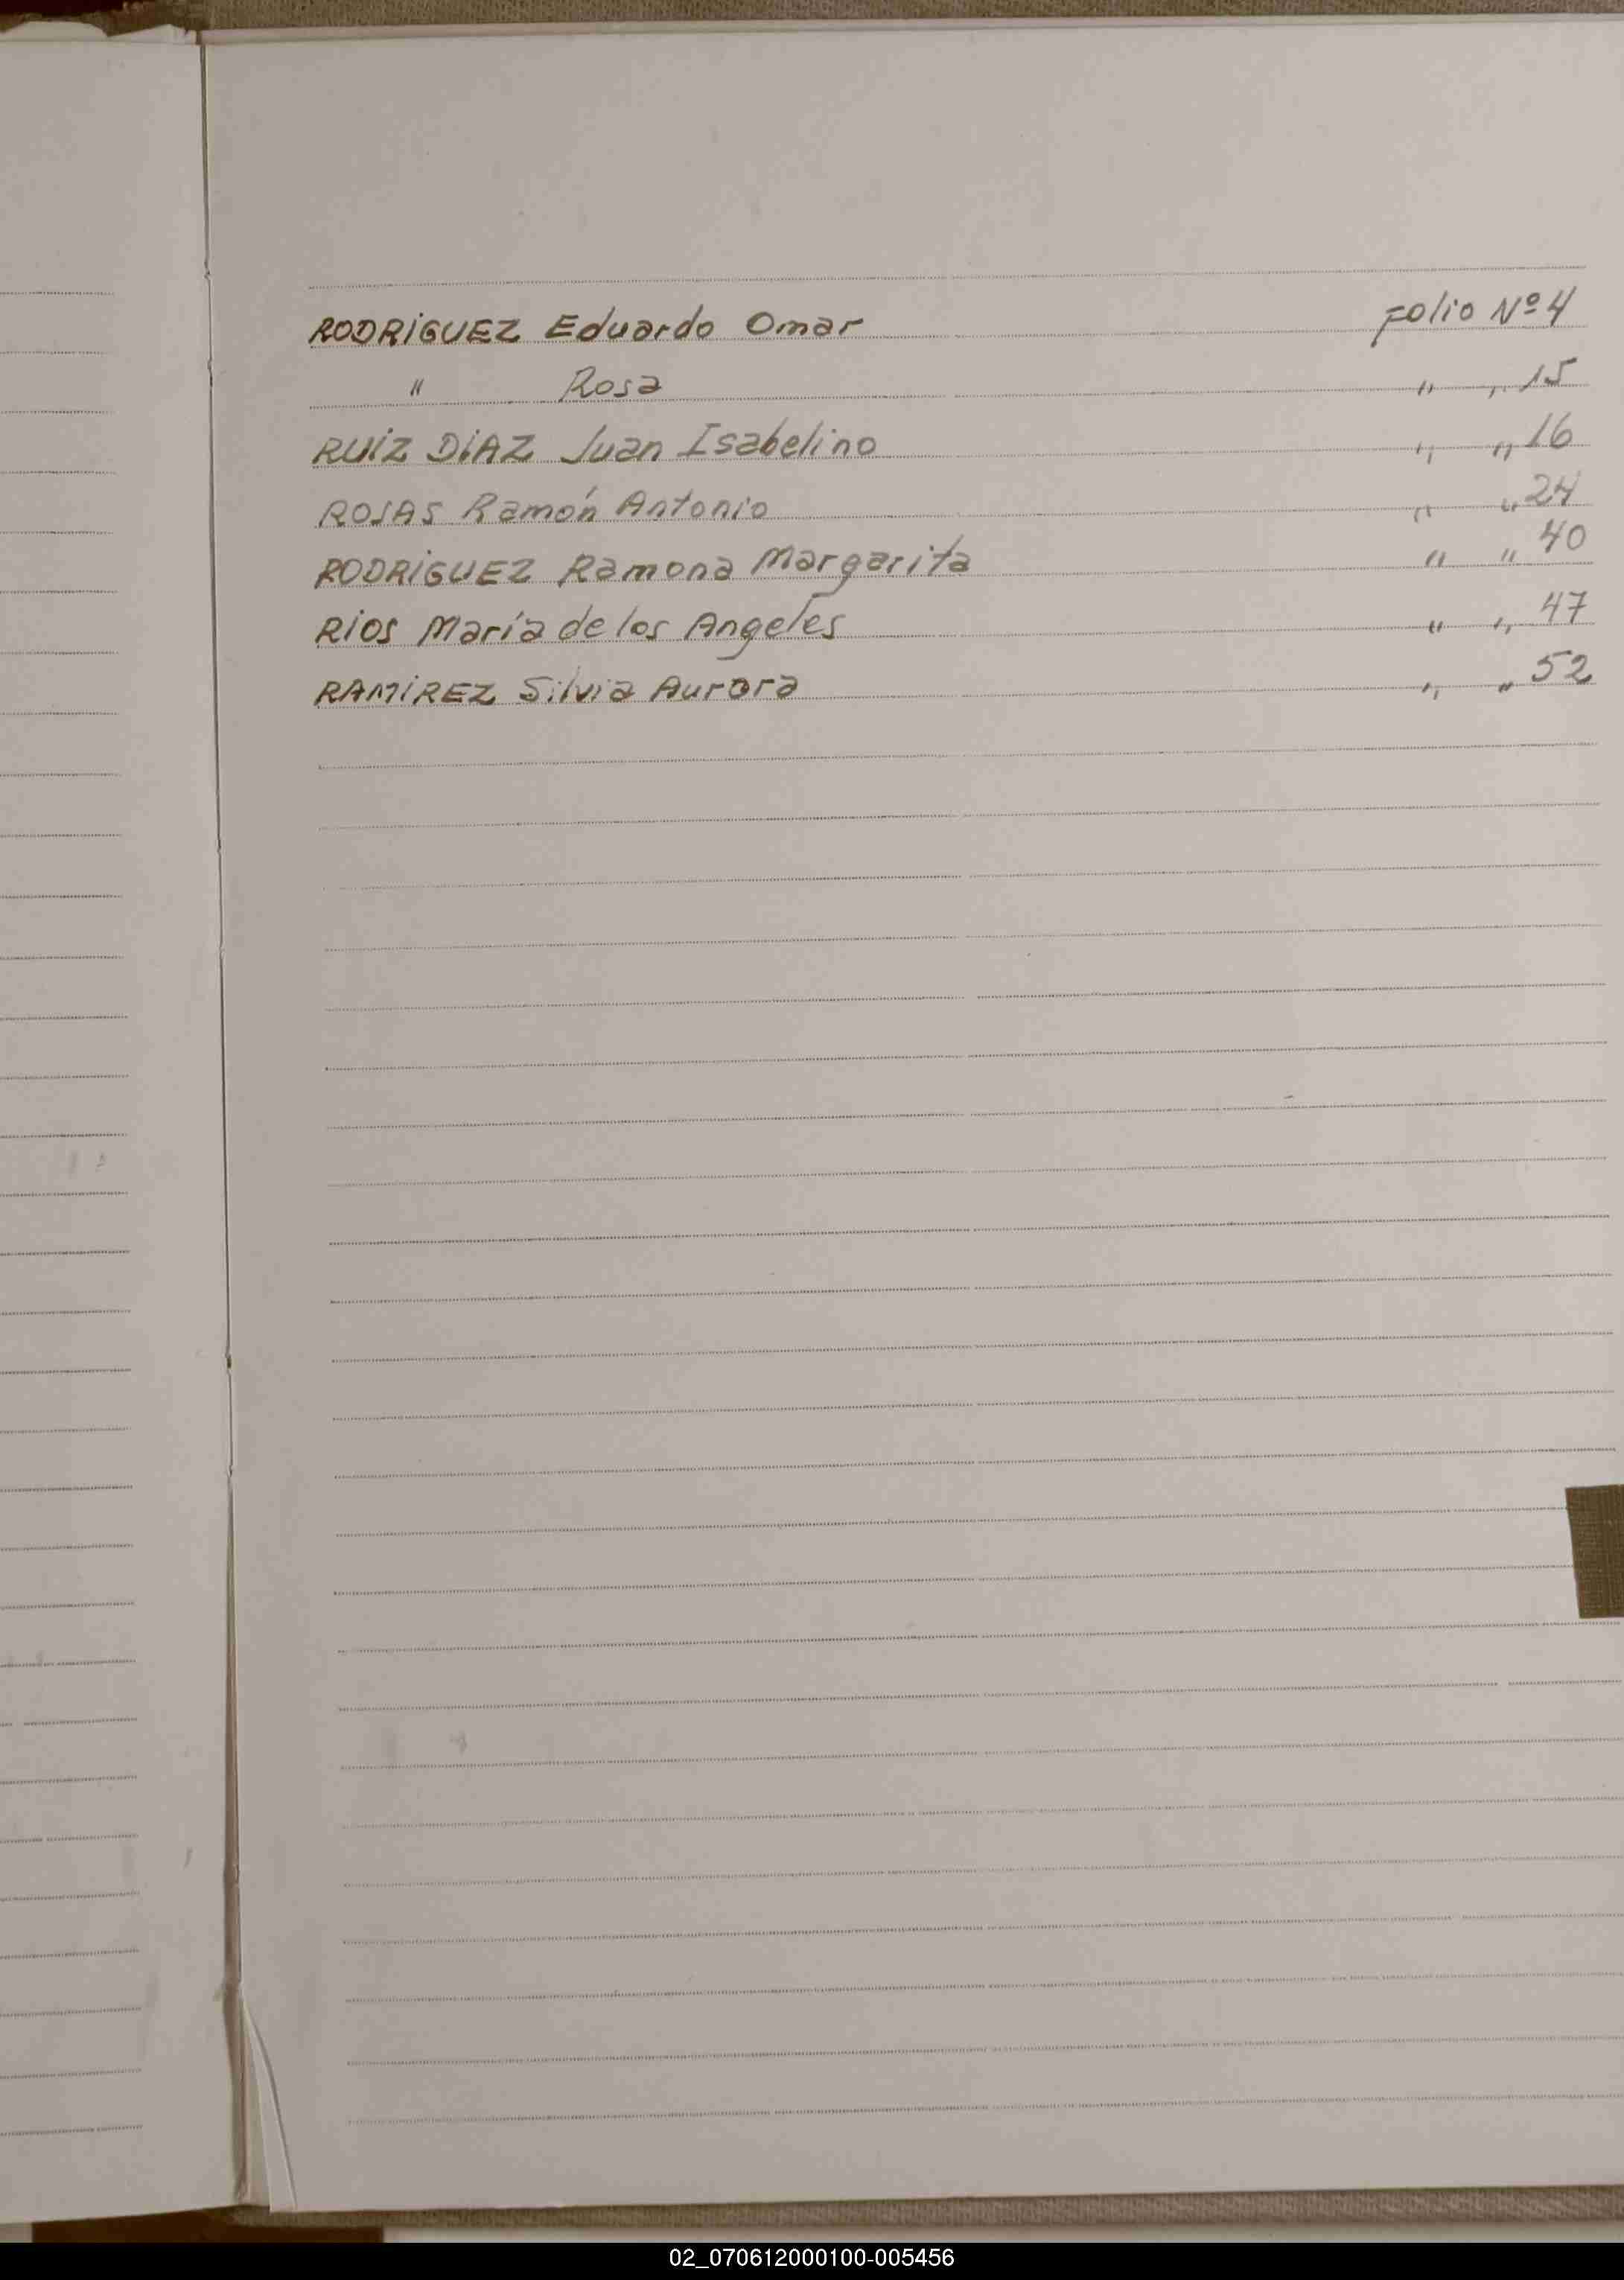 RODRIGUEZ Eduardo Omar Folio Nº 4
" Rosa " " 15
RUIZ DIAZ Juan Isabelino " " 16
ROJAS Ramón Antonio " " 24
RODRIGUEZ Ramona Margarita " " 40
RIOS María de los Angeles " " 47
RAMIREZ Silvia Aurora " " 52
02_070612000100-005456